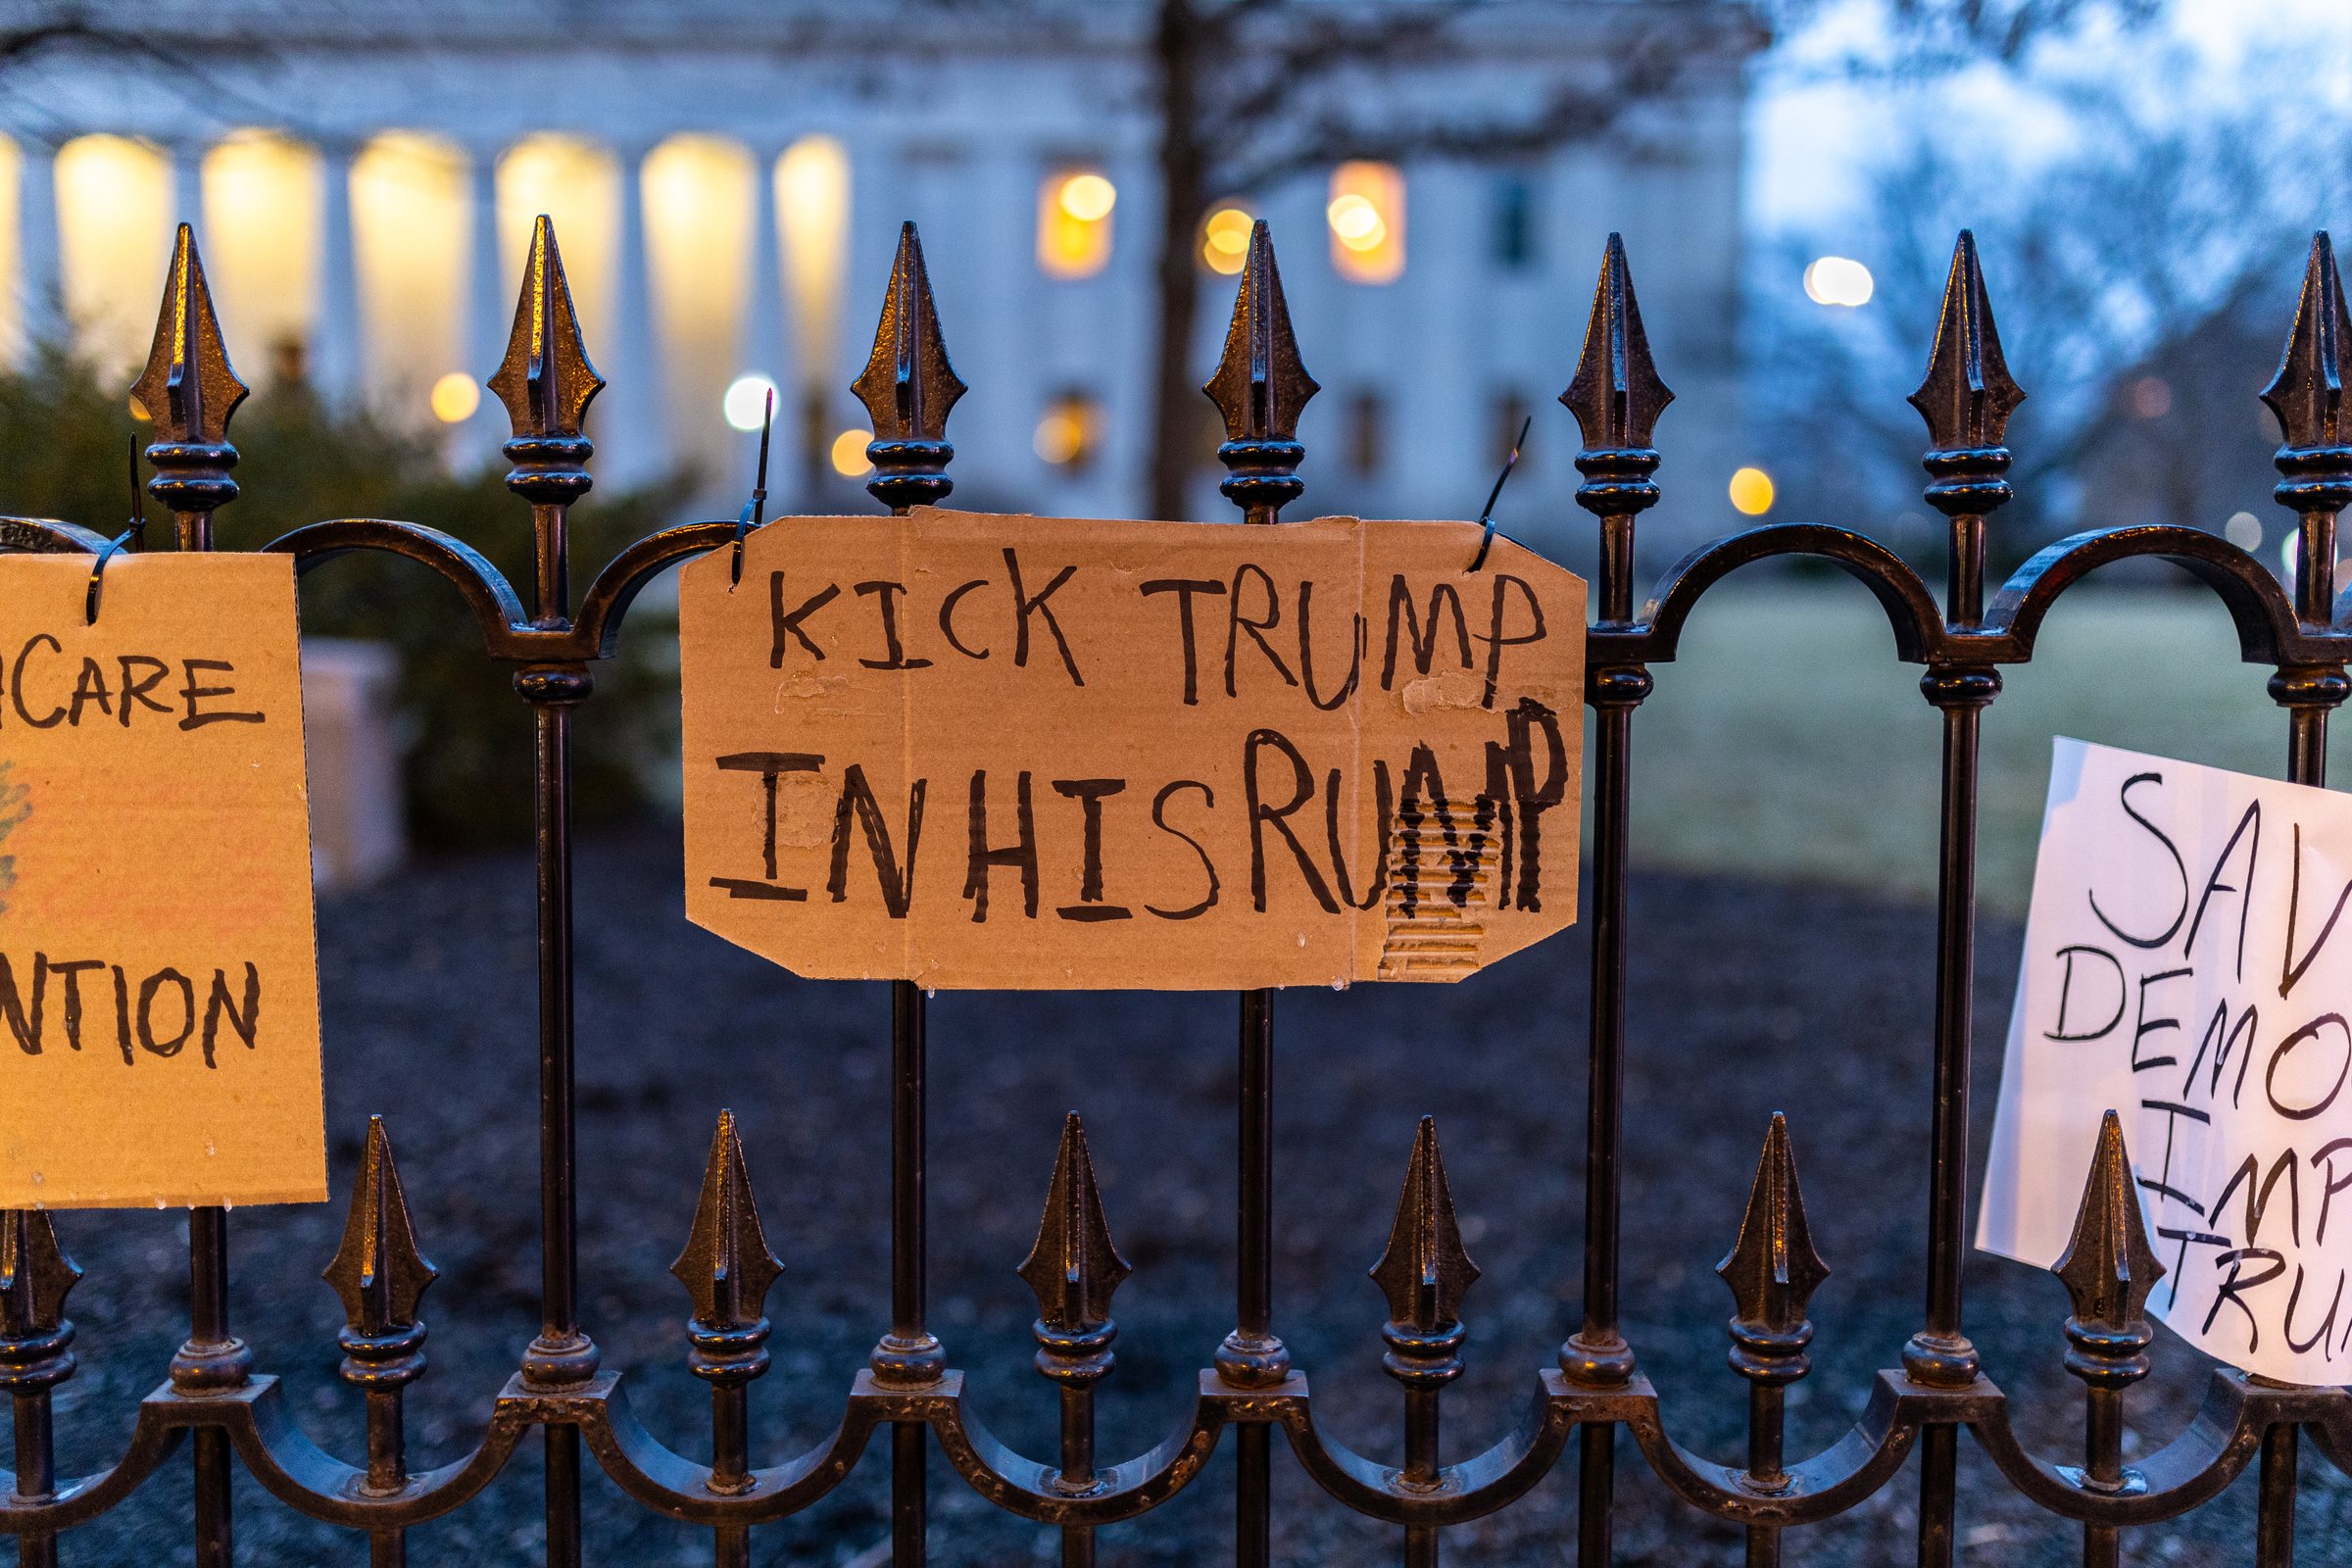 CARE
NTION
KICK TRUMP
IN HIS RUMP
SAV
DEMO
IMP
TRU